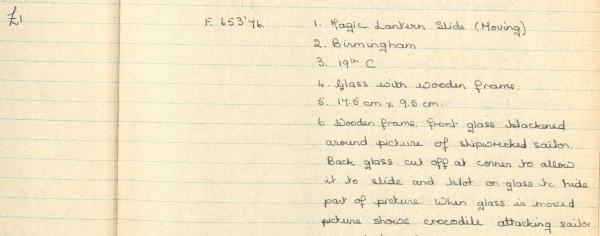 £1
F. 653'76.
1. Magic Lantern Slide (Moving)
2. Birmingham
3. 19th C
4. Glass with wooden frame.
5. 17.5 cm x 9.5 cm.
6. Wooden frame. front glass blackened
around picture of shipwrecked sailor.
Back glass cut off at corner to allow
it to slide and blot on glass to hide
part of picture. When glass is moved
picture shows crocodile attacking sailor